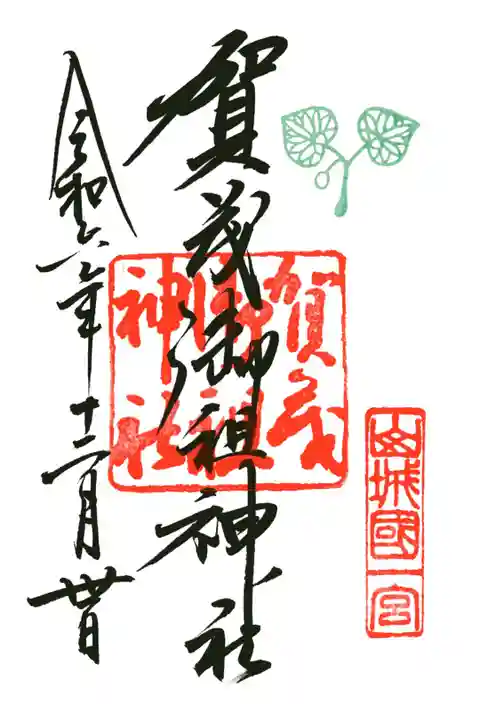 山城國一宮
賀茂御祖神社
賀茂
御祖
神社
令和六年十二月丗日